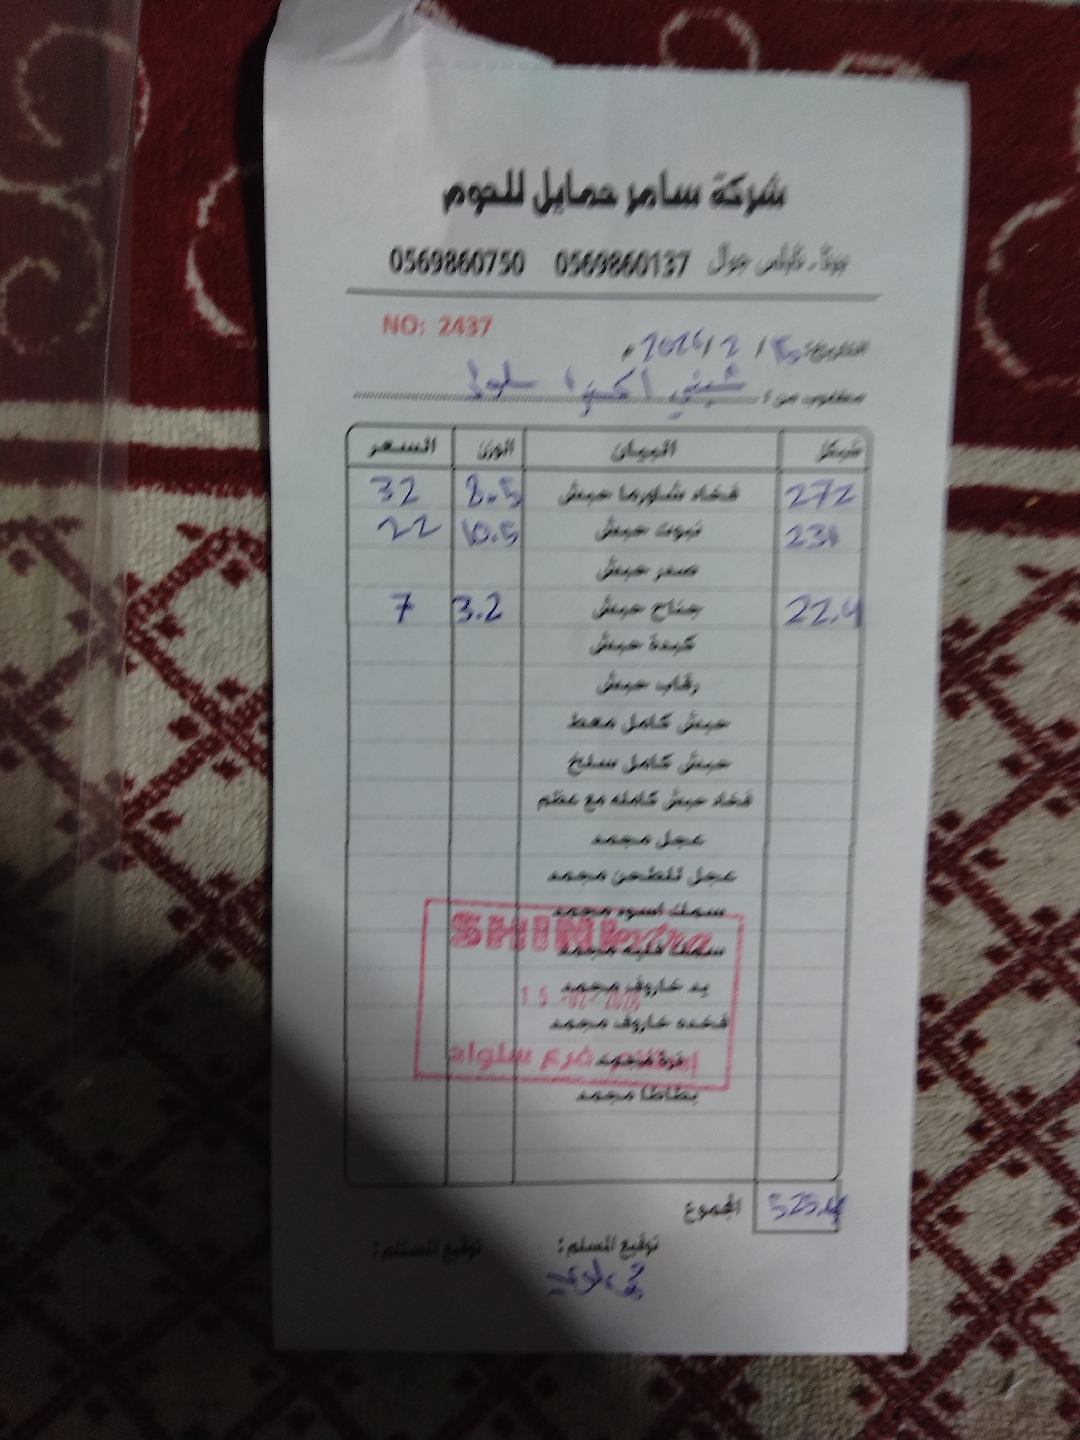 شركة سامر حمايل للحوم
بيتا - نابلس جوال 0569860137 0569860750
NO: 2437
التاريخ: 15 / 2 / 2026 م
مطلوب من: شيني اكسترا سلواد
شيكل البيان الوزن السعر
272 فخاد شاورما حبش 8.5 32
231 نبوت حبش 10.5 22
صدر حبش
22.4 جناح حبش 3.2 7
كبدة حبش
رقاب حبش
حبش كامل معط
حبش كامل سلخ
فخاد حبش كامله مع عظم
عجل مجمد
عجل للطحن مجمد
سمك اسود مجمد
سمك فليه مجمد
يد خاروف مجمد
فخده خاروف مجمد
بطاطا مجمد
SHINI extra
15 -02- 2026
استلام فرع سلواد
المجموع 525.4
توقيع المسلم: توقيع المستلم: